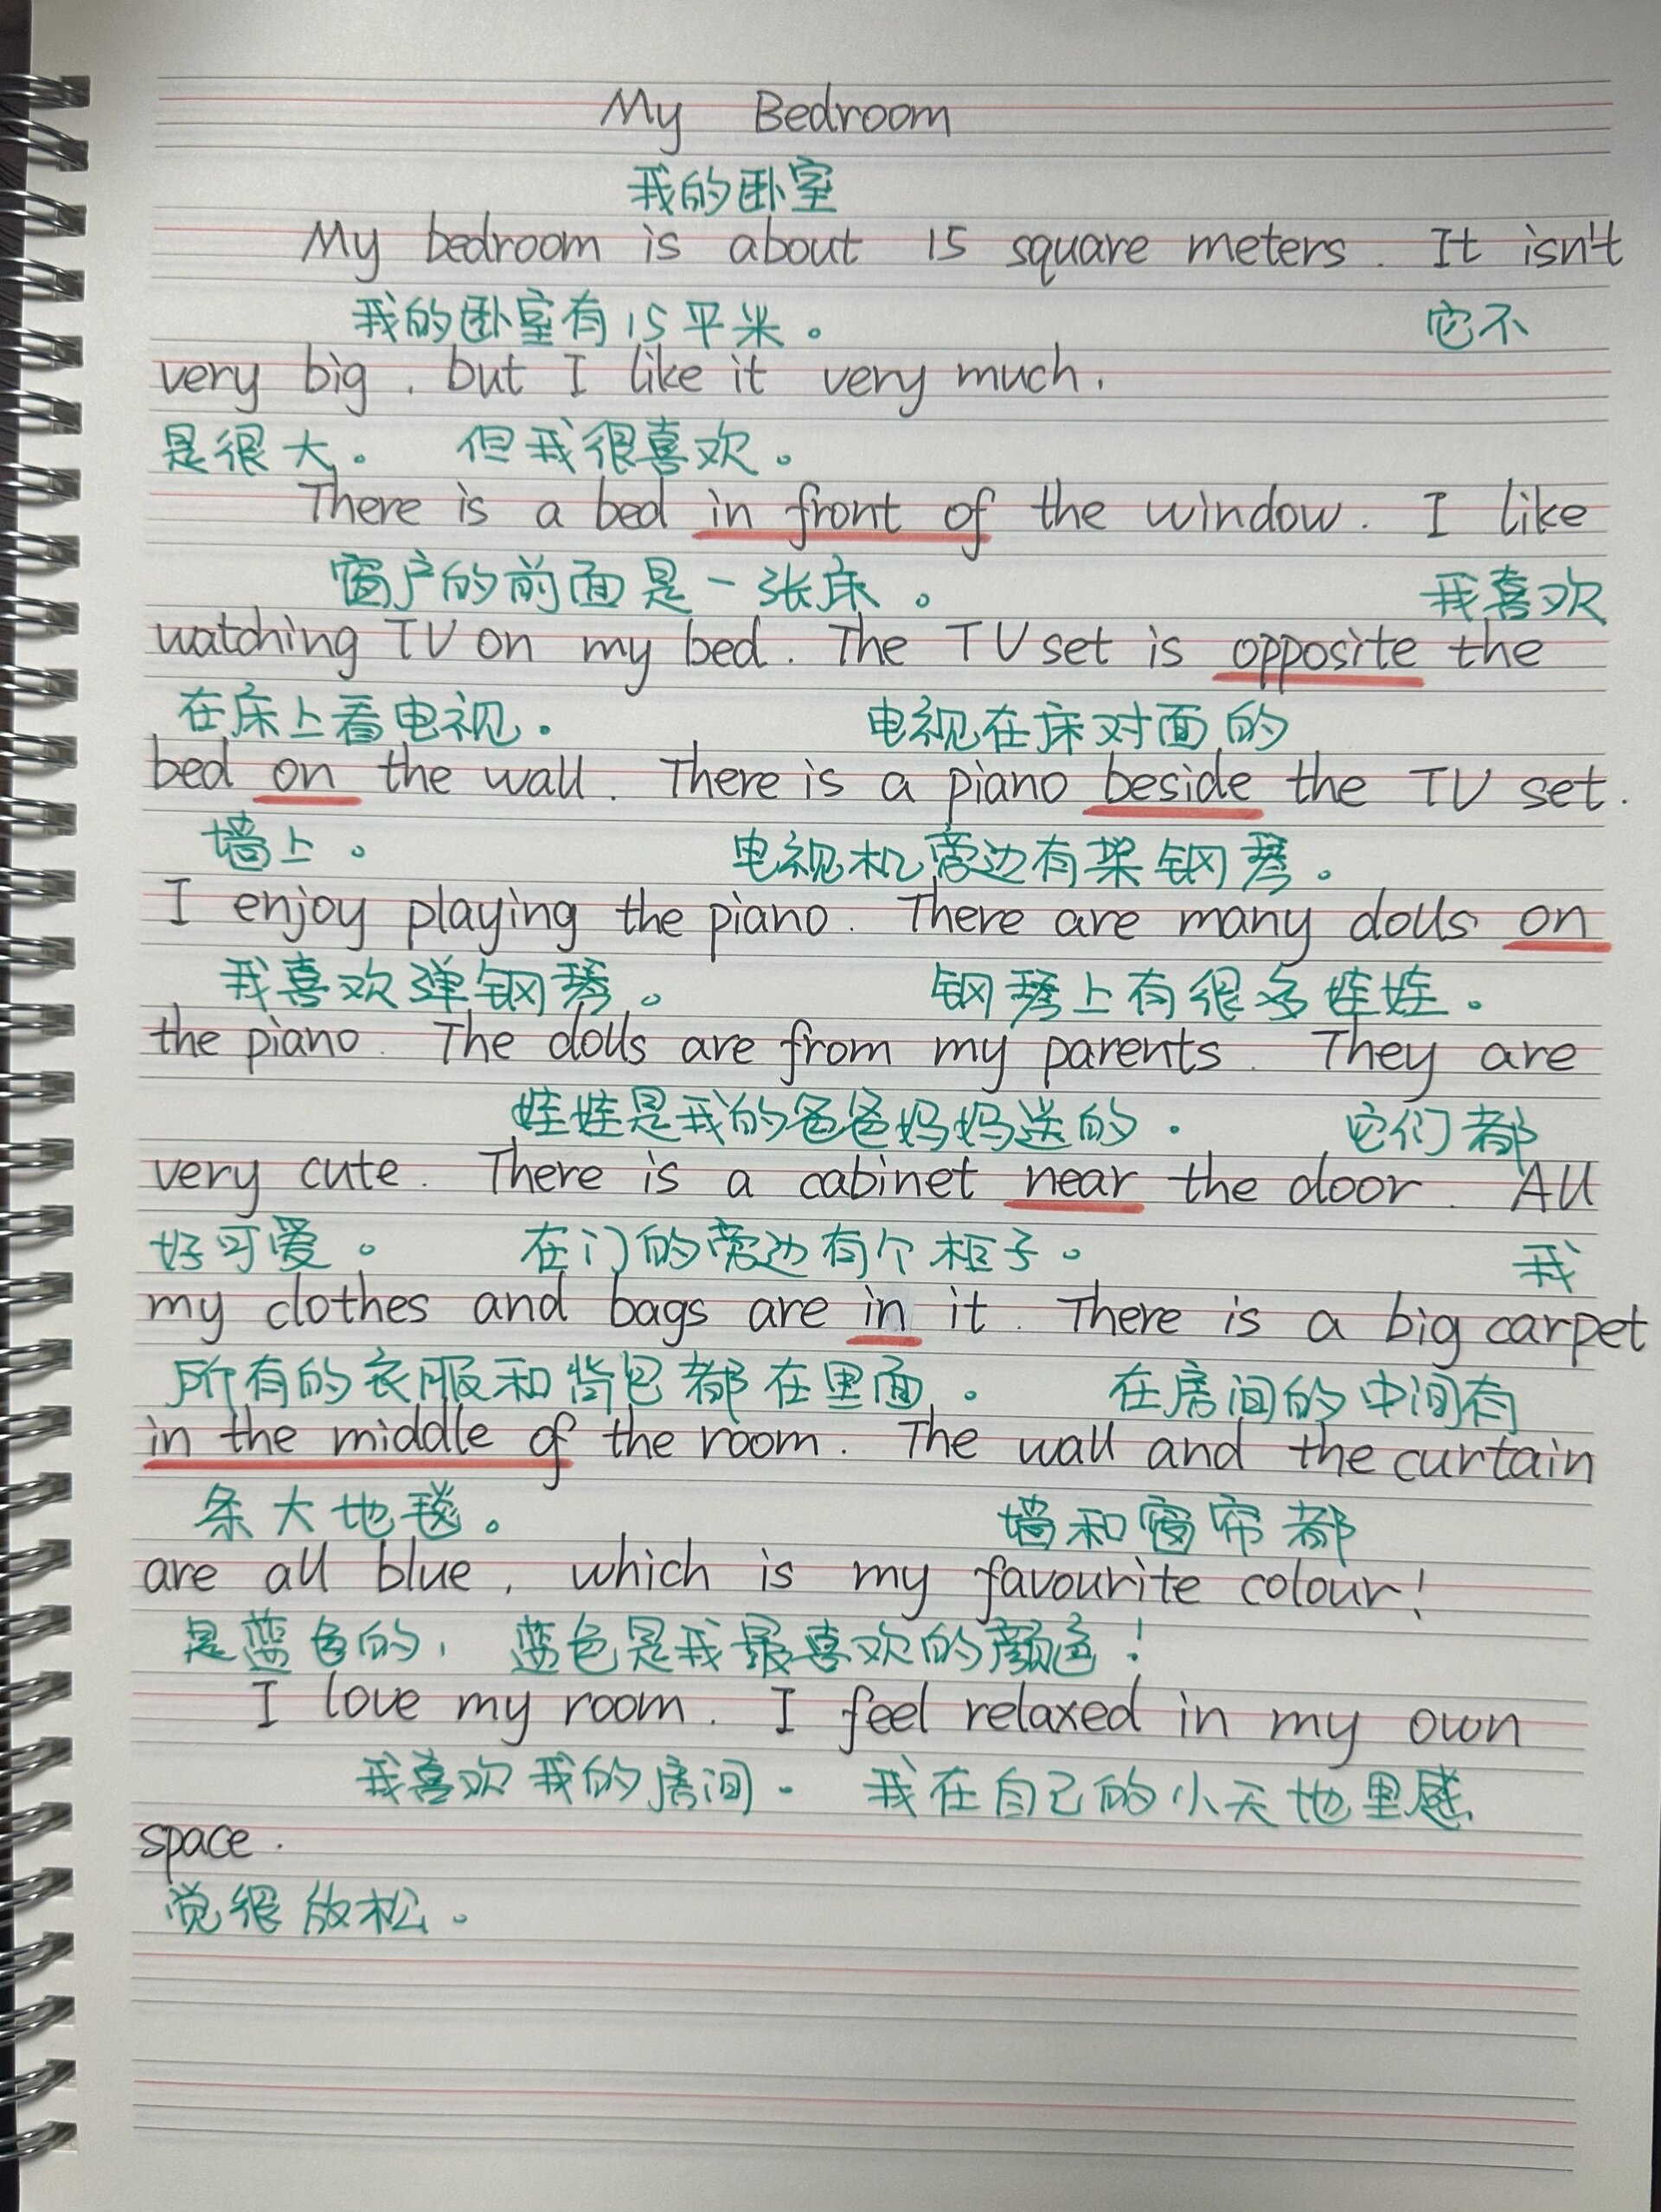 My Bedroom
我的卧室
My bedroom is about 15 square meters. It isn't
我的卧室有15平米。 它不
very big, but I like it very much.
是很大。 但我很喜欢。
There is a bed in front of the window. I like
窗户的前面是一张床。 我喜欢
watching TV on my bed. The TV set is opposite the
在床上看电视。 电视在床对面的
bed on the wall. There is a piano beside the TV set.
墙上。 电视机旁边有架钢琴。
I enjoy playing the piano. There are many dolls on
我喜欢弹钢琴。 钢琴上有很多娃娃。
the piano. The dolls are from my parents. They are
娃娃是我的爸爸妈妈送的. 它们都
very cute. There is a cabinet near the door. All
好可爱。 在门的旁边有个柜子。 我
my clothes and bags are in it. There is a big carpet
所有的衣服和背包都在里面。 在房间的中间有
in the middle of the room. The wall and the curtain
条大地毯。 墙和窗帘都
are all blue, which is my favourite colour!
是蓝色的, 蓝色是我最喜欢的颜色!
I love my room. I feel relaxed in my own
我喜欢我的房间. 我在自己的小天地里感
space.
觉很放松。